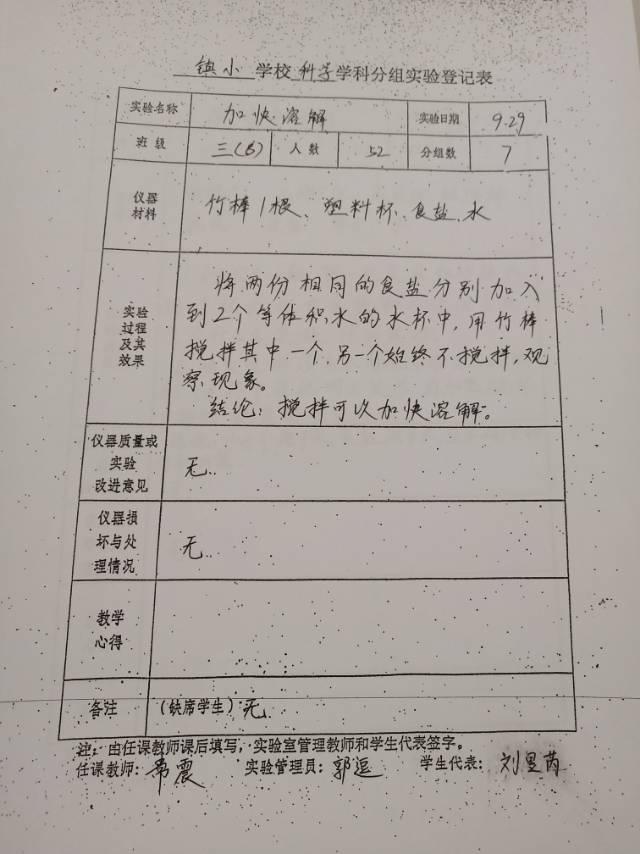 镇小 学校 科学 学科分组实验登记表
实验名称 加快溶解 实验日期 9.29
班级 三(6) 人数 52 分组数 7
仪器材料 竹棒1根、塑料杯、食盐、水
实验过程及其效果
将两份相同的食盐分别加入
到2个等体积水的水杯中,用竹棒
搅拌其中一个,另一个始终不搅拌,观
察现象。
结论:搅拌可以加快溶解。
仪器质量或实验改进意见 无..
仪器损坏与处理情况 无..
教学心得
备注 (缺席学生):无..
注:由任课教师课后填写,实验室管理教师和学生代表签字。
任课教师: 震 实验管理员:郭逗 学生代表:刘